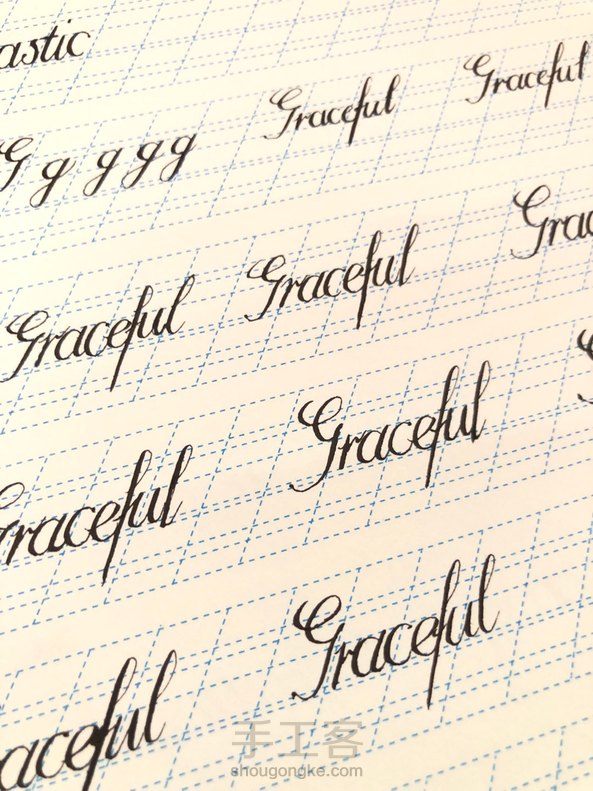 astic
G g g g g Graceful Graceful
Graceful Graceful Grac
Graceful Graceful
aceful Graceful
手工客
shougongke.com